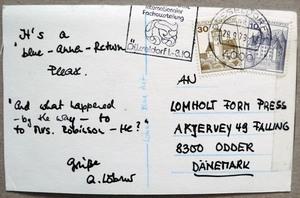 It's a
"blue-anna-Return
Please.
"And what happened
-by the way- to
to Mrs. Robinson-He?"
Grüße
Fachausstellung
Düsseldorf 1.-3.10.
30
4000
AN
LOMHOLT FORM PRESS
AKJERVEY 49 FALLING
8300 ODDER
DÄNEMARK